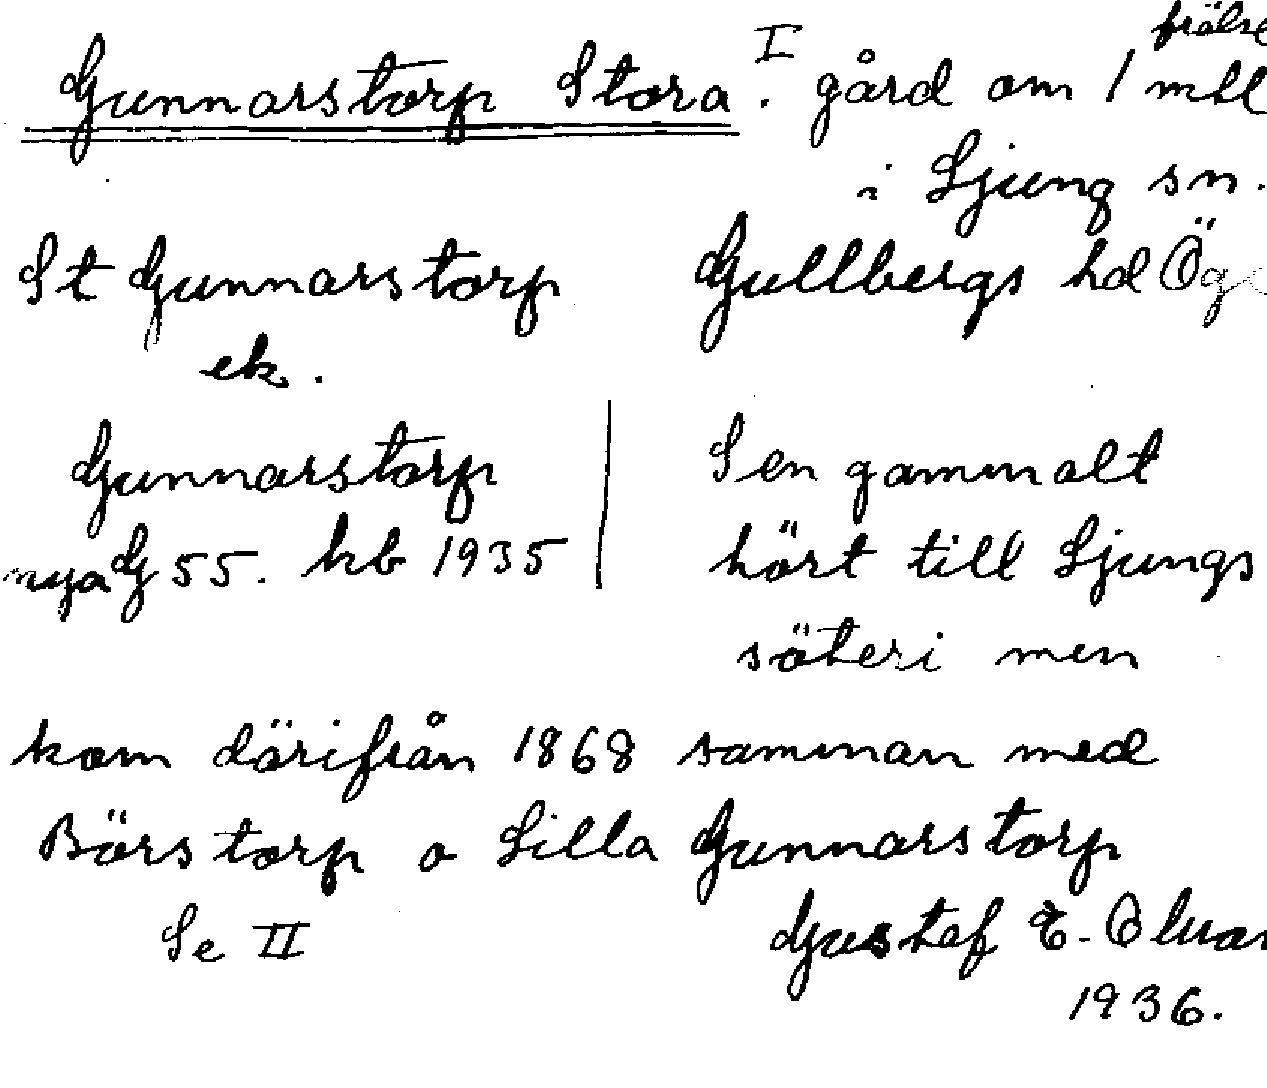 Gunnarstorp Stora. I gård om 1 frälse mtl
i Ljung sn.
St Gunnarstorp Gullbergs hd Ög
ek.
Gunnarstorp Sen gammalt
nya G 55. hb 1935 hört till Ljungs
säteri men
kom därifrån 1868 samman med
Börstorp o Lilla Gunnarstorp
Se II Gustaf E.
1936.